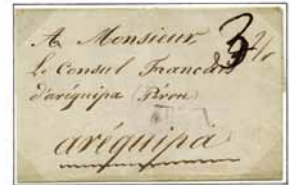 A Monsieur
Le Consul Francais
d'aréquipa Pérou
aréquipa